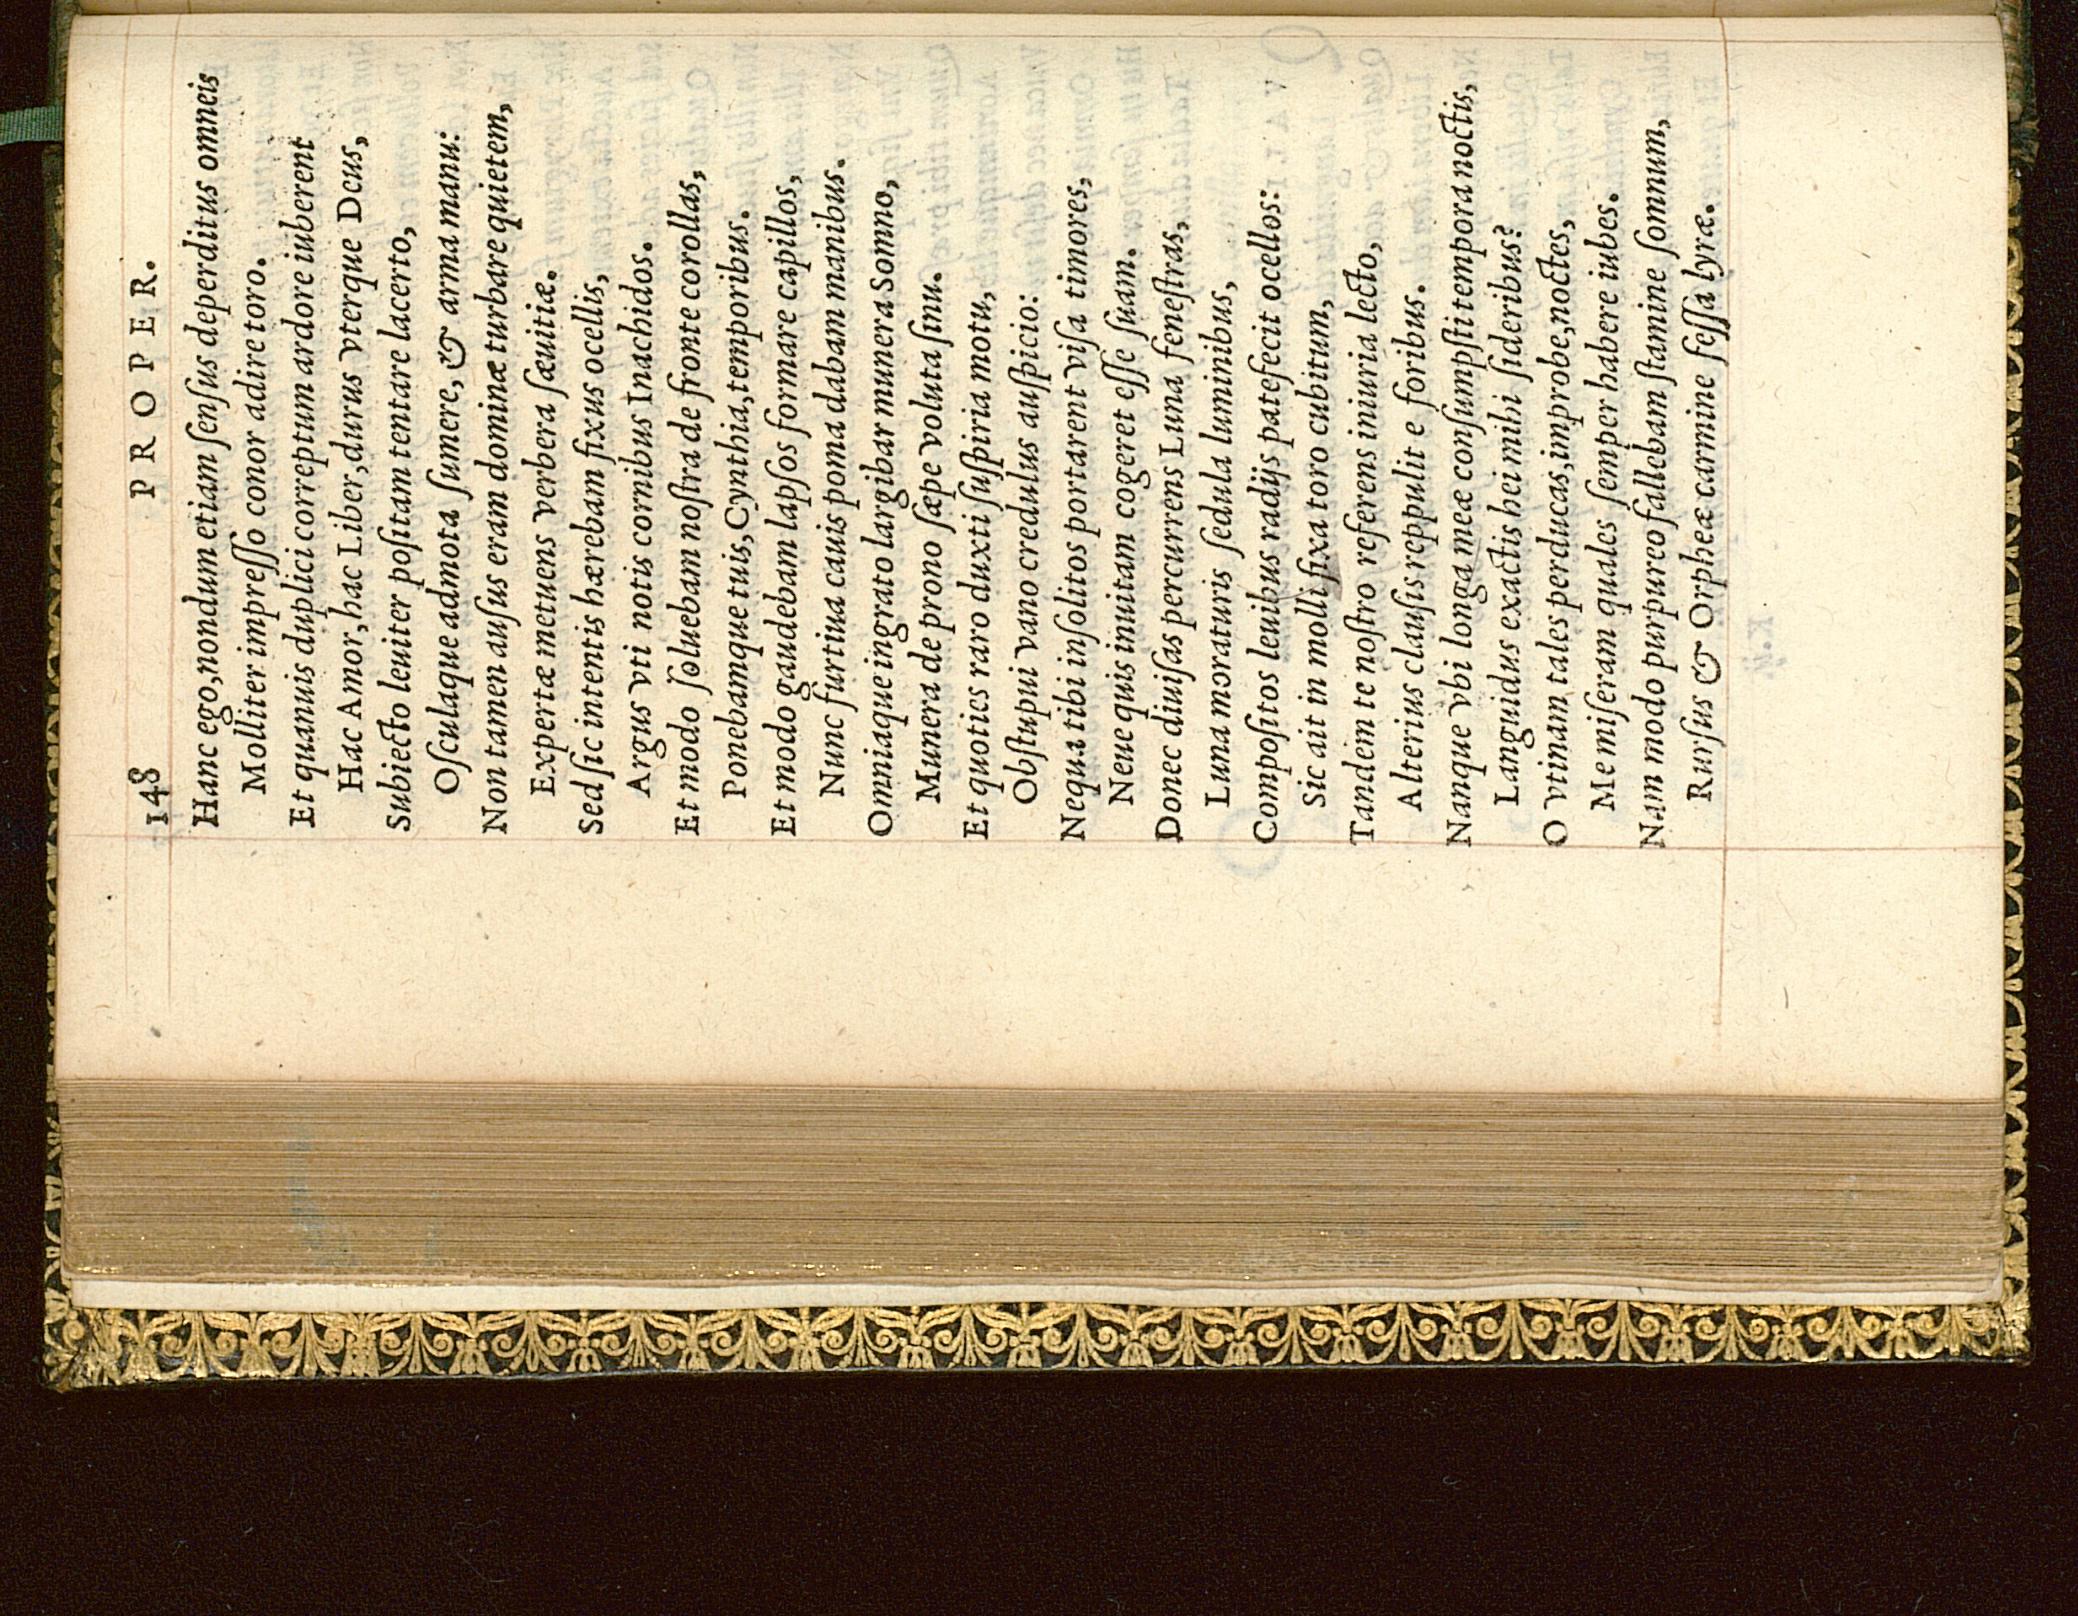 148 PROPER.
Hanc ego, nondum etiam ſenſus deperditus omneis
Molliter impreſſo conor adire toro.
Et quanuis duplici correptum ardore iuberent
Hac Amor, hac Liber, durus vterque Deus,
Subiecto leuiter poſitam tentare lacerto,
Oſculaque admota ſumere, & arma manu:
Non tamen auſus eram dominæ turbare quietem,
Expertæ metuens verbera ſæuitiæ.
Sed ſic intentis hærebam fixus ocellis,
Argus vti notis cornibus Inachidos.
Et modo ſoluebam noſtra de fronte corollas,
Ponebamque tuis, Cynthia, temporibus.
Et modo gaudebam lapſos formare capillos,
Nunc furtiua cauis poma dabam manibus.
Omniaque ingrato largibar munera Somno,
Munera de prono ſæpe voluta ſinu.
Et quoties raro duxti ſuſpiria motu,
Obſtupui vano credulus auſpicio:
Nequa tibi inſolitos portarent viſa timores,
Neue quis inuitam cogeret eſſe ſuam.
Donec diuiſas percurrens Luna feneſtras,
Luna moraturis ſedula luminibus,
Compoſitos leuibus radijs patefecit ocellos:
Sic ait in molli fixa toro cubitum,
Tandem te noſtro referens iniuria lecto,
Alterius clauſis reppulit e foribus.
Nanque vbi longa meæ conſumpſti tempora noctis,
Languidus exactis hei mihi ſideribus?
O vtinam tales perducas, improbe, noctes,
Me miſeram quales ſemper habere iubes.
Nam modo purpureo fallebam ſtamine ſomnum,
Rurſus & Orpheæ carmine feſſa lyræ.